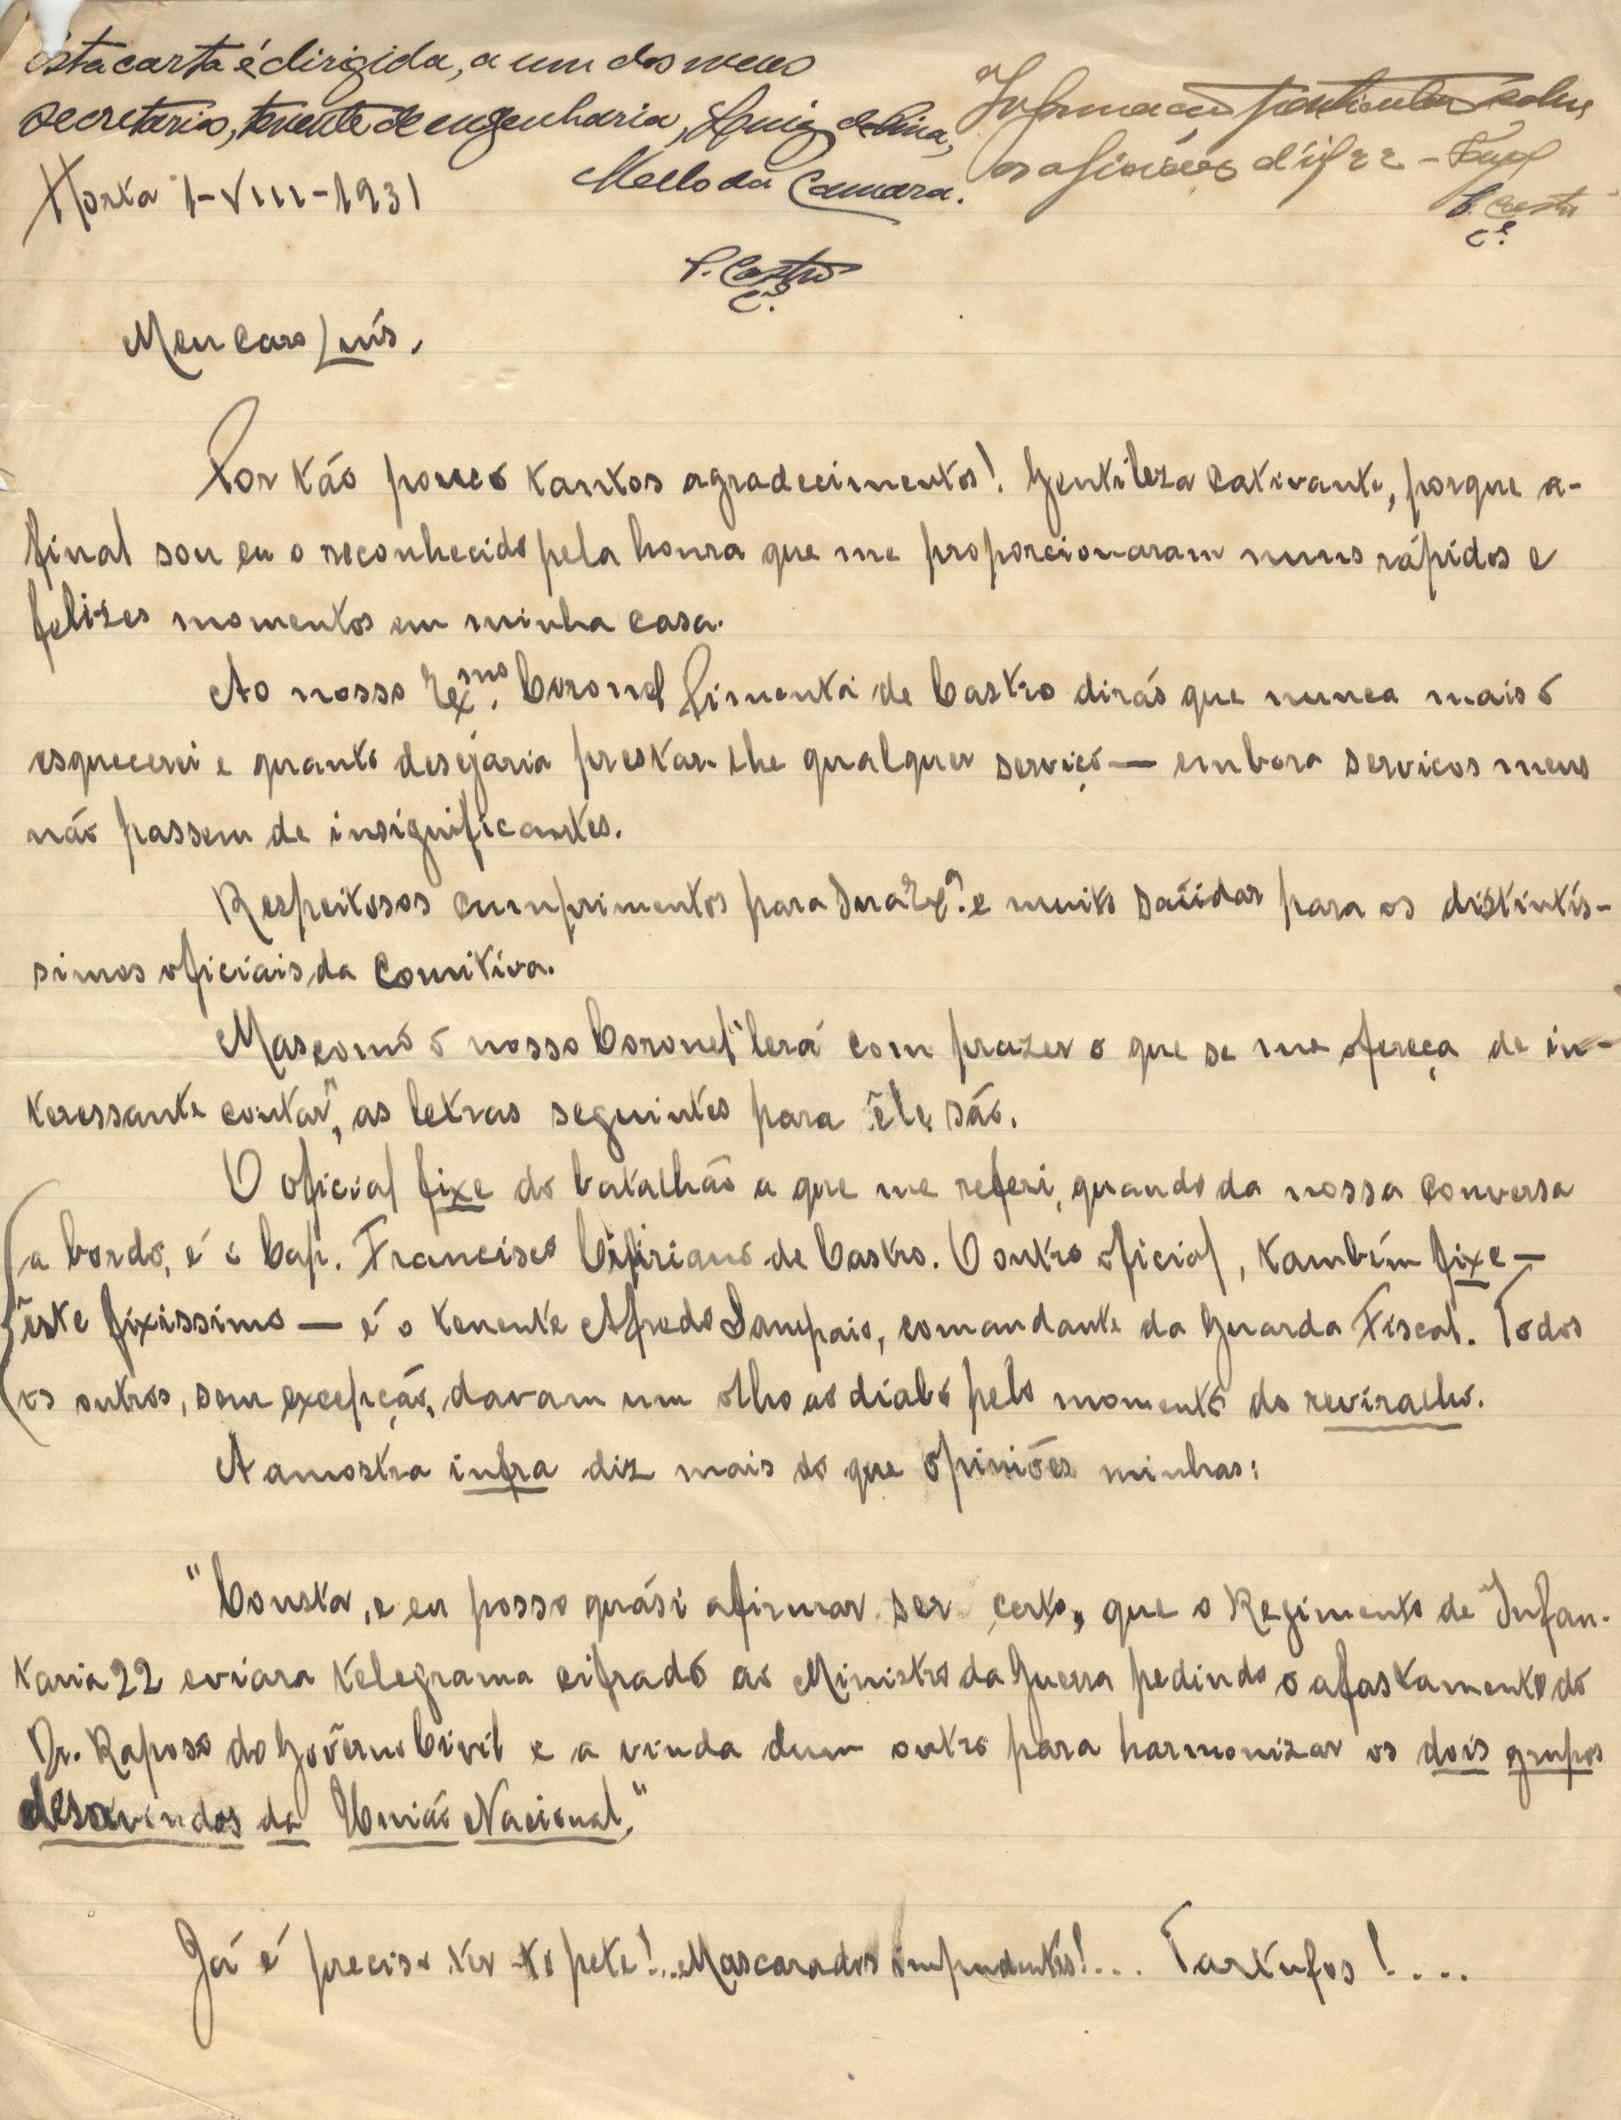 Esta carta é dirigida, a um dos meus
secretarios, tenente de engenharia, Luiz de Lima,
Mello da Camara.
P. Castro
C.el
Informação particular sobre
os oficiaes d'if 22 -
P. Castro
C.el
Horta 1-VIII-1931
Meu caro Luís,
Por tão pouco tantos agradecimentos! Gentileza cativante, porque a-
final sou eu o reconhecido pela honra que me proporcionaram nuns rápidos e
felizes momentos em minha casa.
Ao nosso Exmo. Coronel Pimenta de Castro dirás que nunca mais o
esquecerei e quanto desejaria prestar-lhe qualquer serviço — embora serviços meus
não passem de insignificantes.
Respeitosos cumprimentos para Sua Exa. e muito saüdar para os distintís-
simos oficiais da comitiva.
Mas como o nosso Coronel "lerá com prazer o que se me ofereça de in-
teressante contar", as letras seguintes para êle são.
O oficial fixe do batalhão a que me referi, quando da nossa conversa
a bordo, é o Cap. Francisco Cipriano de Castro. O outro oficial, também fixe —
êste fixissimo — é o tenente Alfredo Sampaio, comandante da Guarda Fiscal. Todos
os outros, sem excepção, davam um olho ao diabo pelo momento do reviralho.
A amostra infra diz mais do que opiniões minhas:
"Consta, e eu posso quási afirmar ser certo, que o Regimento de Infan-
taria 22 eviara telegrama cifrado ao Ministro da Guerra pedindo o afastamento do
Dr. Raposo do Govêrno Civil e a vinda dum outro para harmonizar os dois grupos
desavindos da União Nacional."
Já é preciso ter topete!... Mascarados impudentes!... Tartufos!....